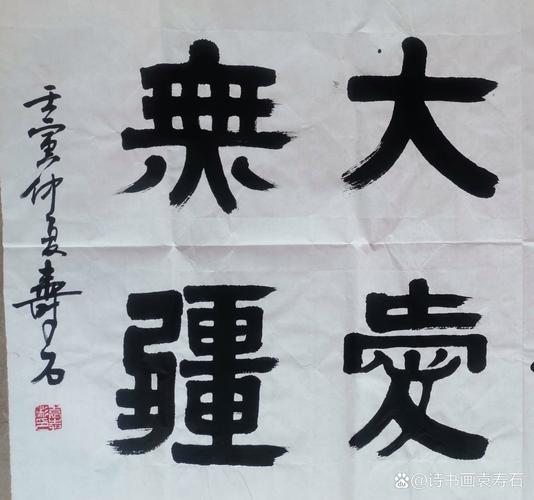 大愛
無疆
壬寅仲夏壽石
诗书画袁寿石